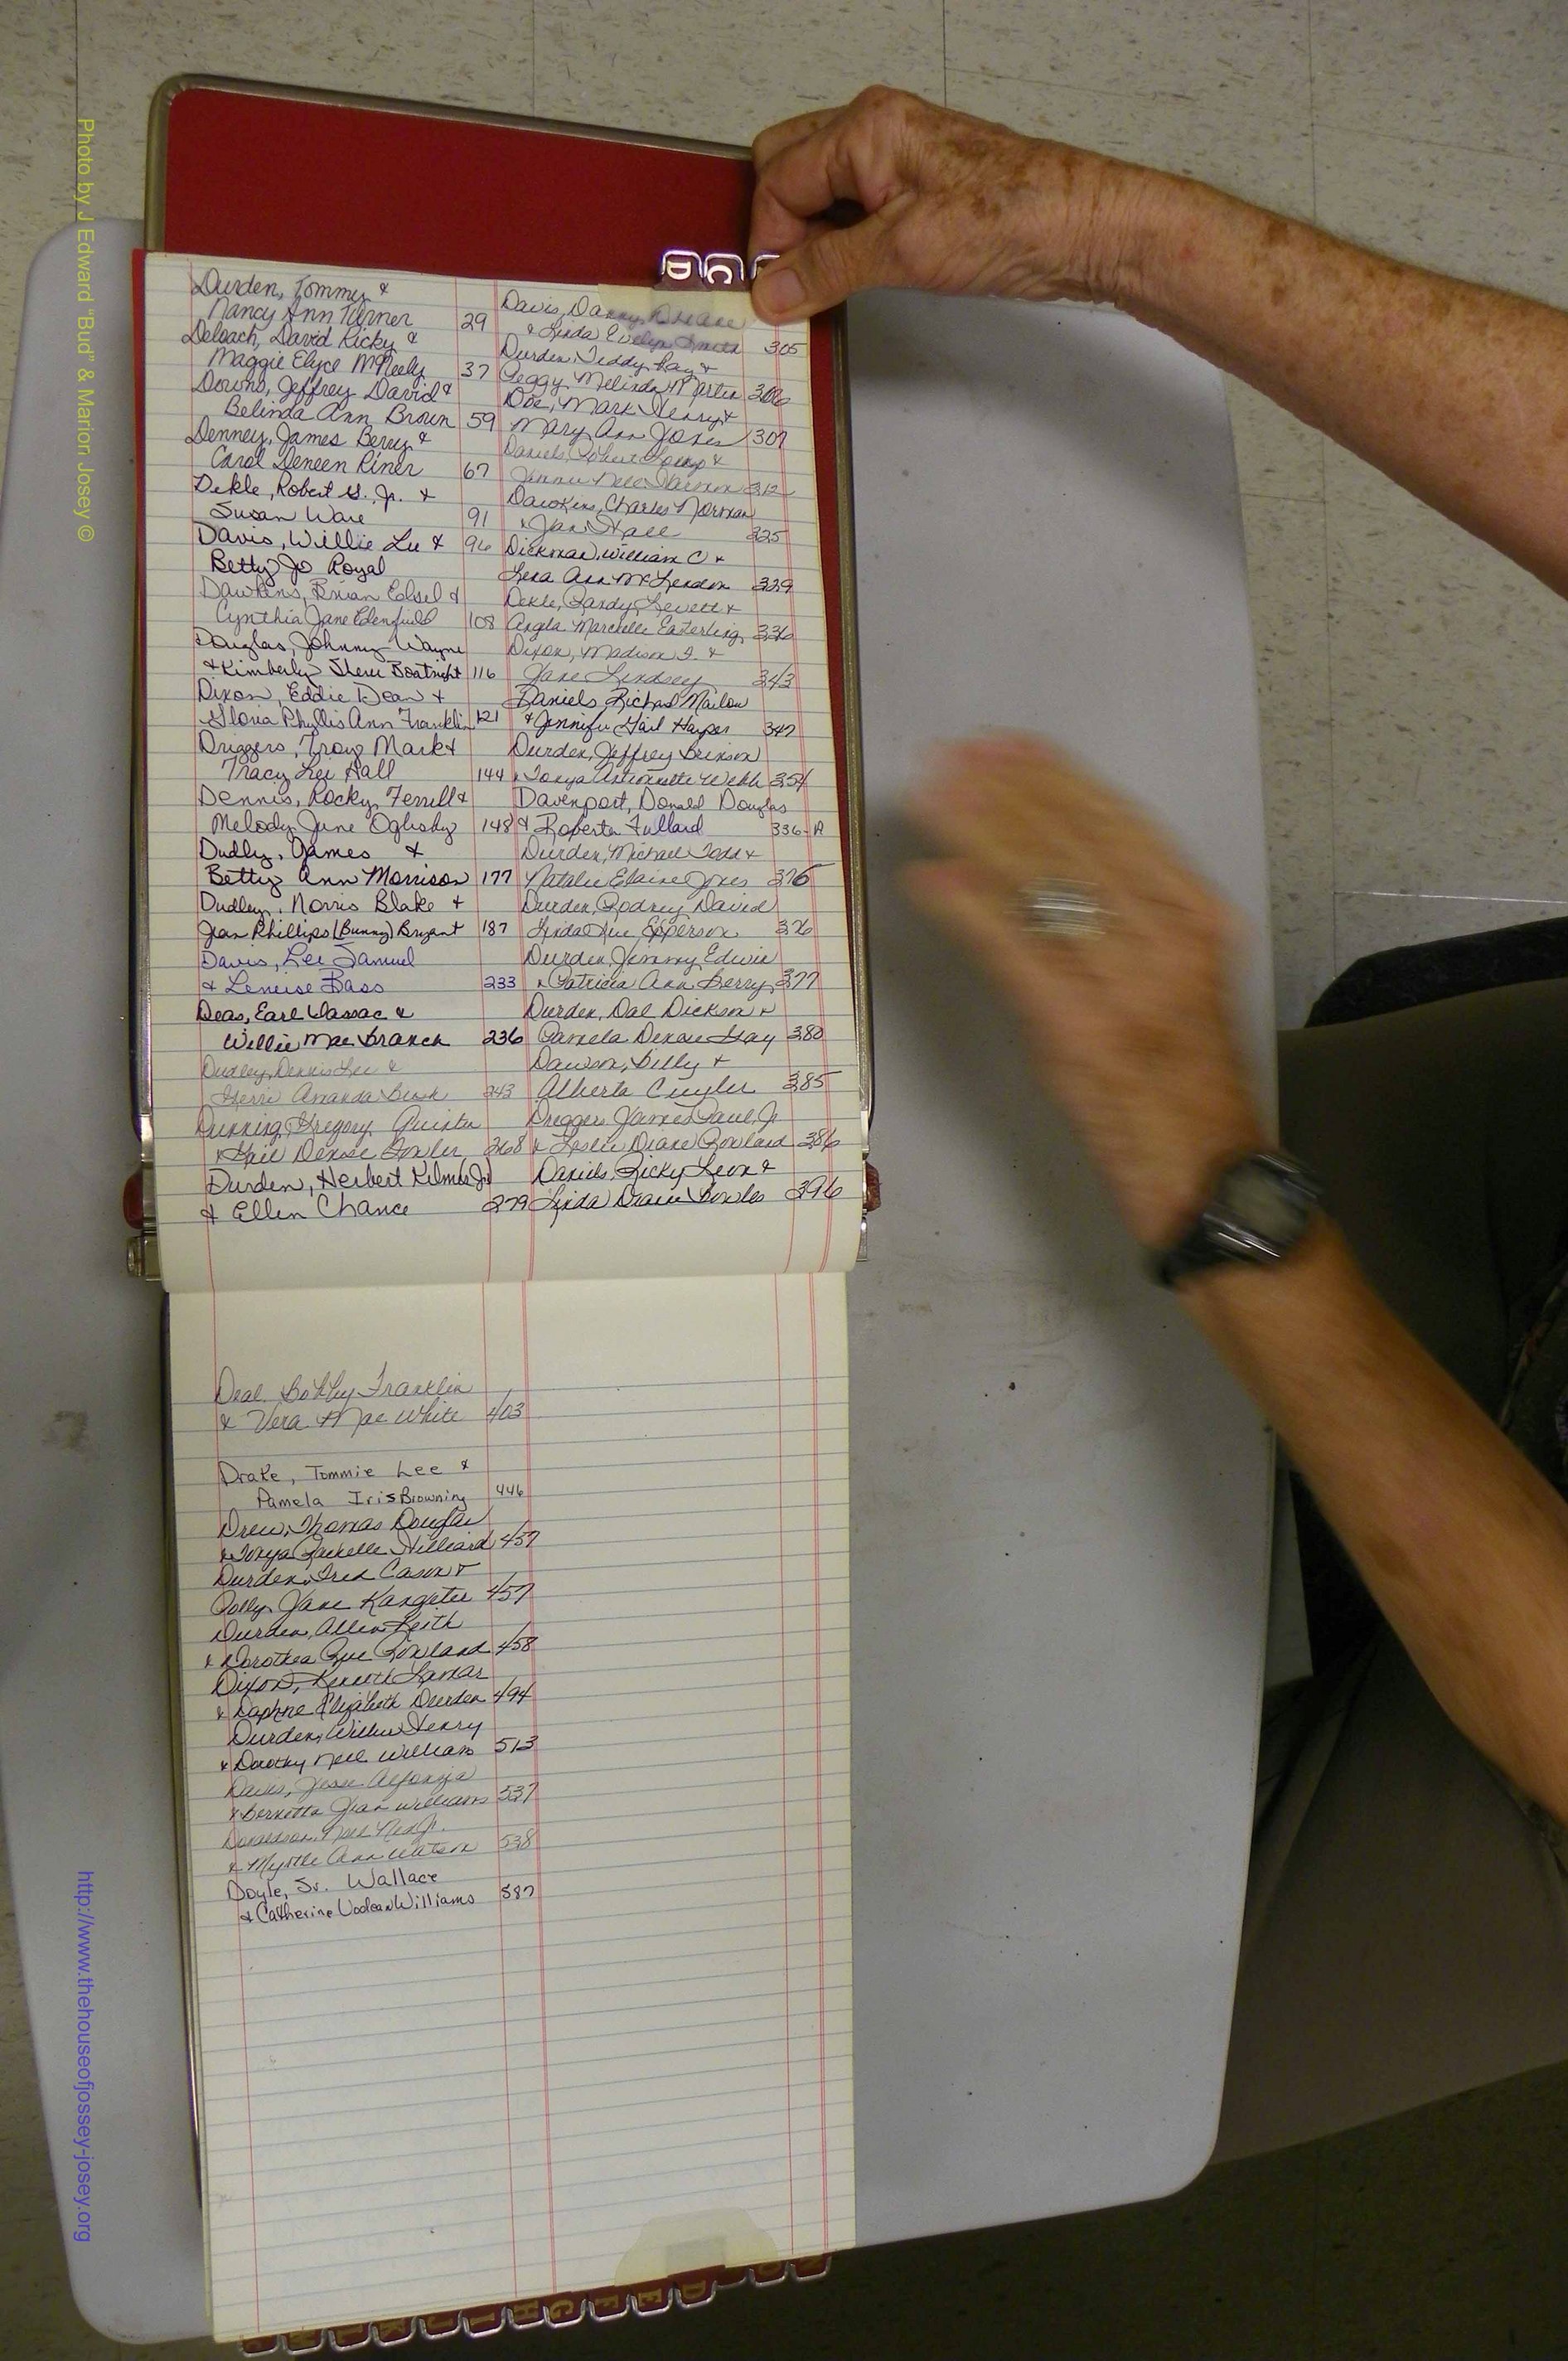 Photo by J Edward "Bud" & Marion Josey ©
http://www.thehouseofjossey-josey.org
D
C
Durden, Tommy &
Nancy Ann Turner 29
Deloach, David Ricky &
Maggie Elyce McNeely 37
Downs, Jeffrey David &
Belinda Ann Brown 59
Denney, James Berry &
Carol Deneen Riner 67
Dekle, Robert G. Jr. &
Susan Ware 91
Davis, Willie Lee & 96
Betty Jo Royal
Dawkins, Brian Edsel &
Cynthia Jane Edenfield 108
Douglas, Johnny Wayne
& Kimberly Sheri Boatright 116
Dixon, Eddie Dean &
Gloria Phyllis Ann Franklin 121
Driggers, Troy Mark &
Tracy Lei Hall 144
Dennis, Rocky Ferrill &
Melody June Oglesby 148
Dudly, James &
Betty Ann Morrison 177
Dudley, Norris Blake &
Jean Phillips (Bunny) Bryant 187
Davis, Lee Samuel
& Leneise Bass 233
Deas, Earl &
Willie Mae Branch 236
Dudley, Dennis Lee &
Amanda 243
Dunning, Gregory Quinton
& Gail Denise Fowler 268
Durden, Herbert Kilmer Jr
& Ellen Chance 279
Davis, Danny
& Linda Evelyn Smith 305
Durden, Teddy Ray &
Peggy Melinda Martin 306
Doe, Mark Henry &
Mary Ann Jones 307
Daniels, Robert &
312
Dawkins, Charles Norman
& Jan Hall 325
Dickman, William C &
Lena Ann McLendon 329
Dekle, Randy Levett &
Angela Marchelle Easterling 336
Dixon, Madison F. &
Jane Lindsey 343
Daniels, Richard Marlow
& Jennifer Gail Harper 347
Durden, Jeffrey Brinson
& Tonya Antoinette Webb 354
Davenport, Donald Douglas
& Roberta Fullard 336-A
Durden, Michael Todd &
Natalie Elaine Jones 376
Durden, Rodney David
Linda Sue Epperson 376
Durden, Jimmy Edwin
& Patricia Ann Berry 377
Durden, Dal Dickson &
Pamela Denise Gay 380
Dawson, Billy &
Alberta Cuyler 385
Driggers, James Paul, Jr
& Leslie Diane Rowland 386
Daniels, Ricky Leon &
Linda Diane Bowles 396
Deal, Bobby Franklin
& Vera Mae White 403
Drake, Tommie Lee &
Pamela Iris Browning 446
Drew, Thomas Douglas
& Tonya Rachelle Hilliard 457
Durden, Fred Cason &
Polly Jane Kangeter 457
Durden, Allen Keith
& Dorothea Sue Rowland 458
Dixon, Kenneth Lamar
& Daphne Elizabeth Durden 494
Durden, Wilbur Henry
& Dorothy Nell Williams 513
Davis, Jesse Alfonza
& Bernetta Jean Williams 537
Donaldson, Jr.
& Myrtle Ann Watson 538
Doyle, Sr. Wallace
& Catherine Williams 587